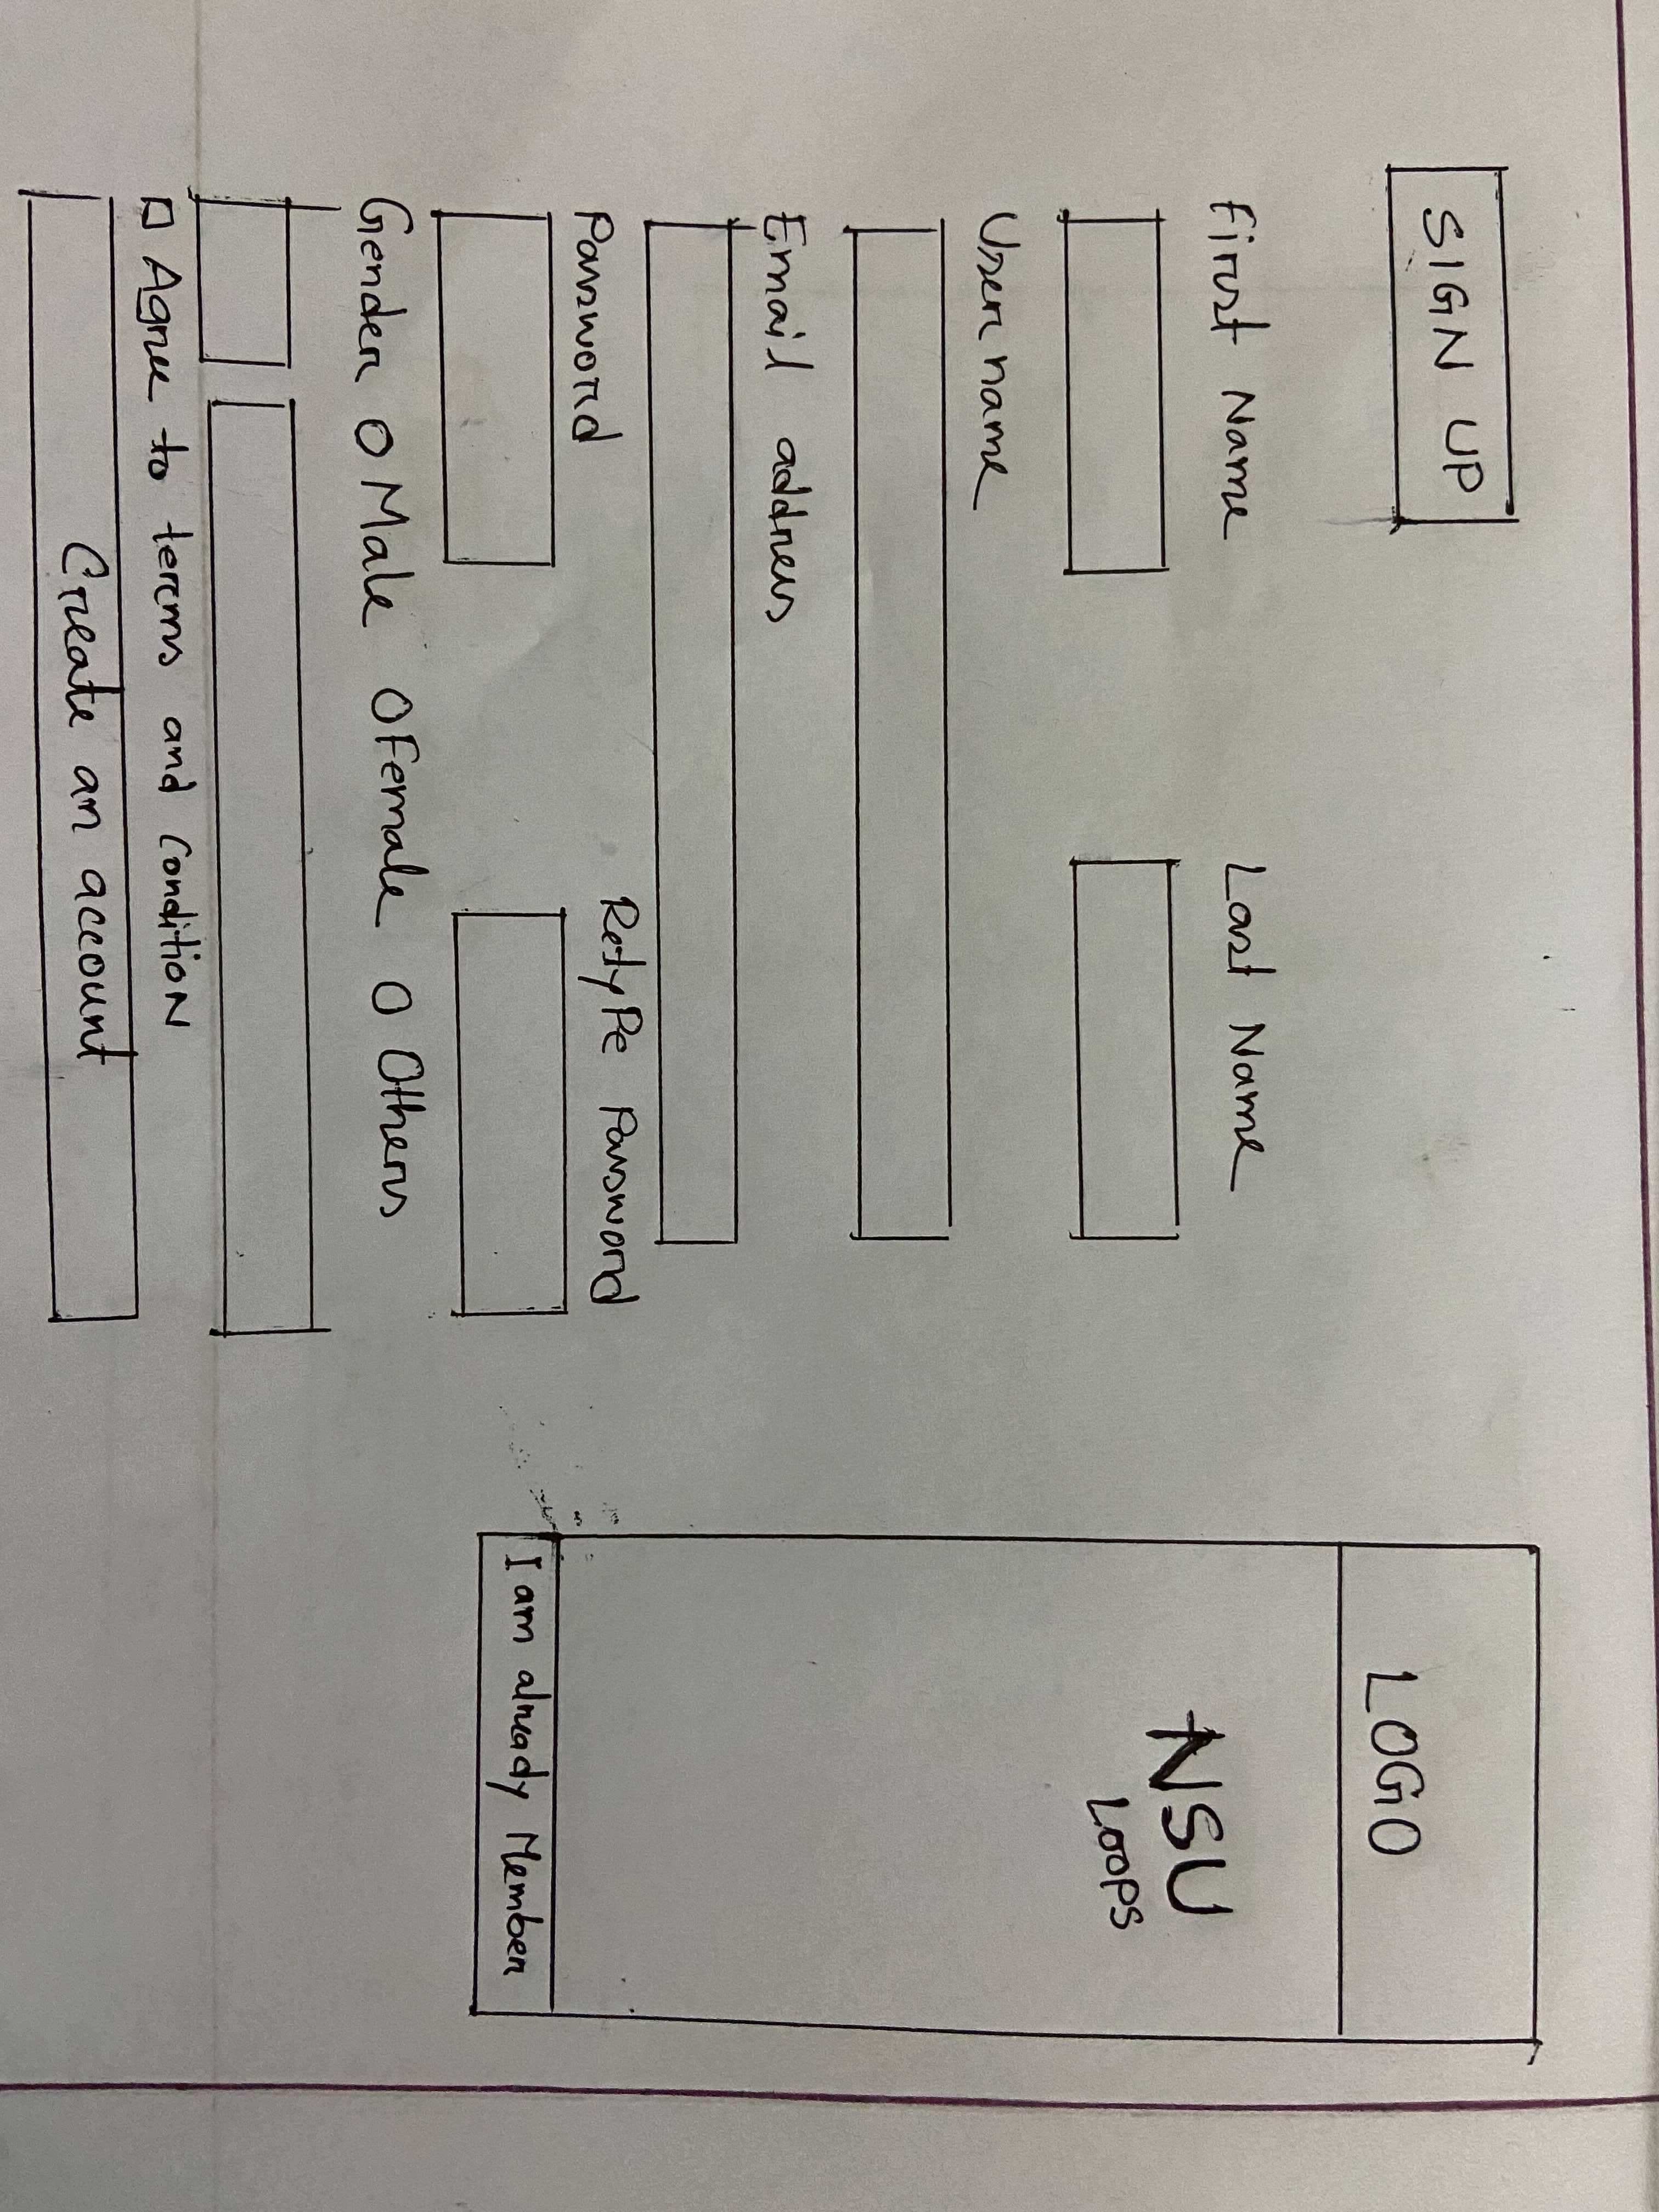 SIGN UP
First Name
Last Name
User name
Email address
Password
Retype Password
Gender O Male O Female O Others
Agree to terms and condition
Create an account
LOGO
NSU
LOOPS
I am already Member